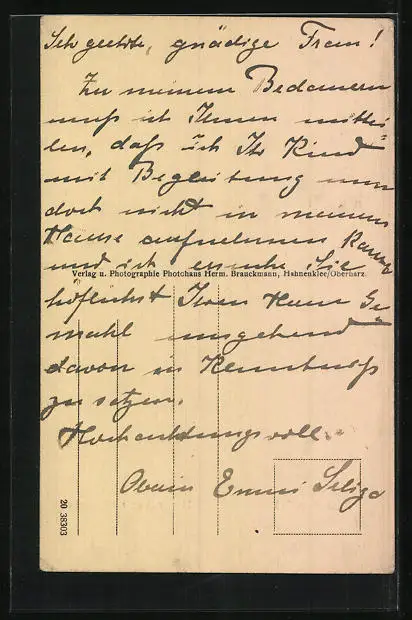 Sehr geehrte, gnädige Frau!
Zu meinem Bedauern
muß ich Ihnen mittei=
len, daß ich Ihr Kind
mit Begleitung nun
doch nicht in meinem
Hause aufnehmen kann
und ich ersuche Sie
Verlag u. Photographie Photohaus Herm. Brauckmann, Hahnenklee/Oberharz.
höflichst Ihren Herrn Ge=
mahl umgehend
davon in Kenntniss
zu setzen.
Hochachtungsvoll
Emmi
20 38303